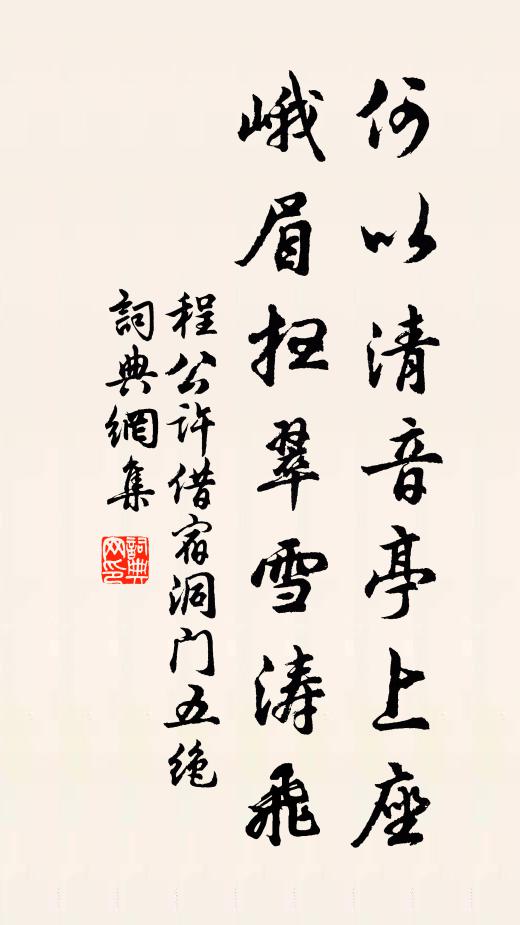 何以清音亭上座
峨眉翠雪涛飛
程公許借宿洞門五絶
詞典網集
詞典
网印